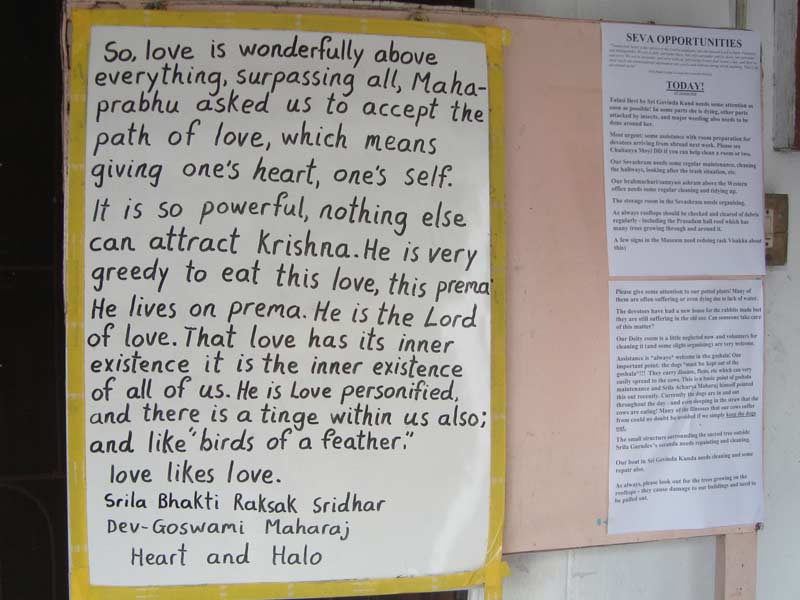 So, love is wonderfully above
everything, surpassing all, Maha-
prabhu asked us to accept the
path of love, which means
giving one's heart, one's self.
It is so powerful, nothing else
can attract Krishna. He is very
greedy to eat this love, this prema
He lives on prema. He is the Lord
of love. That love has its inner
existence it is the inner existence
of all of us. He is Love personified,
and there is a tinge within us also;
and like "birds of a feather."
love likes love.
Srila Bhakti Raksak Sridhar
Dev-Goswami Maharaj
Heart and Halo
SEVA OPPORTUNITIES
TODAY!
Tulasi Devi by Sri Govinda Kund needs some attention as
soon as possible! In some parts she is dying, other parts
attacked by insects, and major weeding also needs to be
done around her.
Most urgent: some assistance with room preparation for
devotees arriving from abroad next week. Please see
Chaitanya Moyi DD if you can help clean a room or two.
Our Sevashram needs some regular maintenance, cleaning
the hallways, looking after the trash situation, etc.
Our brahmachari/sannyasi ashram above the Western
office needs some regular cleaning and tidying up.
The storage room in the Sevashram needs organising.
As always rooftops should be checked and cleared of debris
regularly - including the Prasadam hall roof which has
many trees growing through and around it.
A few signs in the Museum need redoing (ask Visakha about
this)
Please give some attention to our potted plants! Many of
them are often suffering or even dying due to lack of water.
The devotees have had a new house for the rabbits made but
they are still suffering in the old one. Can someone take care
of this matter?
Our Deity room is a little neglected now and volunteers for
cleaning it (and some slight organising) are very welcome.
Assistance is *always* welcome in the goshala! One
important point: the dogs *must be kept out of the
goshala*!!! They carry disease, fleas, etc which can very
easily spread to the cows. This is a basic point of goshala
maintenance and Srila Acharya Maharaj himself pointed
this out recently. Currently the dogs are in and out
throughout the day - and even sleeping in the straw that the
cows are eating! Many of the illnesses that our cows suffer
from could no doubt be avoided if we simply keep the dogs
out.
The small structure surrounding the sacred tree outside
Srila Gurudev's veranda needs repainting and cleaning.
Our boat in Sri Govinda Kunda needs cleaning and some
repair also.
As always, please look out for the trees growing on the
rooftops - they cause damage to our buildings and need to
be pulled out.